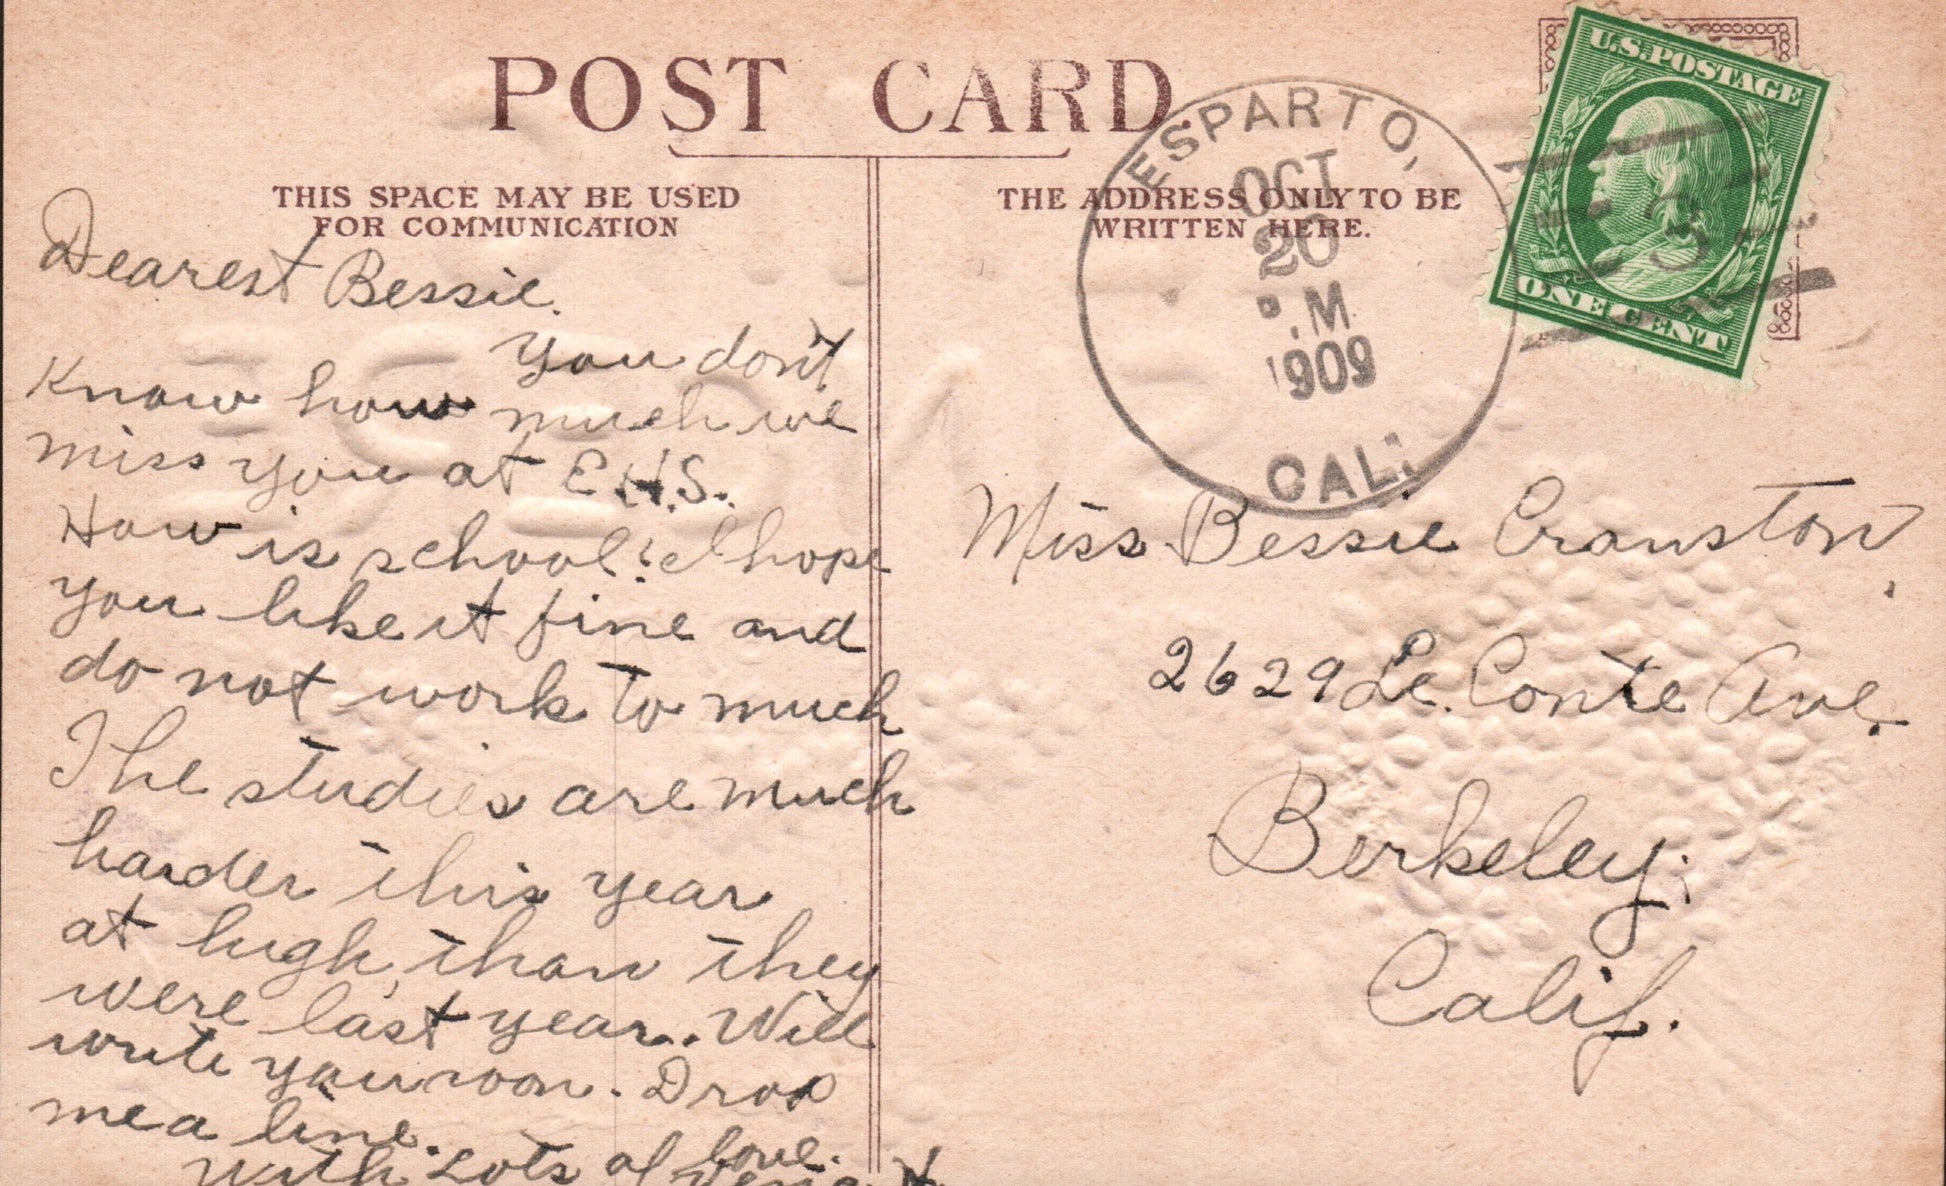 POST CARD
THIS SPACE MAY BE USED
FOR COMMUNICATION
THE ADDRESS ONLY TO BE
WRITTEN HERE.
ESPARTO,
OCT
20
P.M
1909
CAL.
U.S. POSTAGE
ONE CENT
3
Dearest Bessie.
You don't
Know how much we
miss you at E.H.S.
How is school? I hope
you like it fine and
do not work to much
The studies are much
harder this year
at high, than they
were last year. Will
write you soon. Drop
me a line.
With Lots of love.
Miss Bessie Cranston,
2629 Le. Conte Ave.
Berkeley.
Calif.